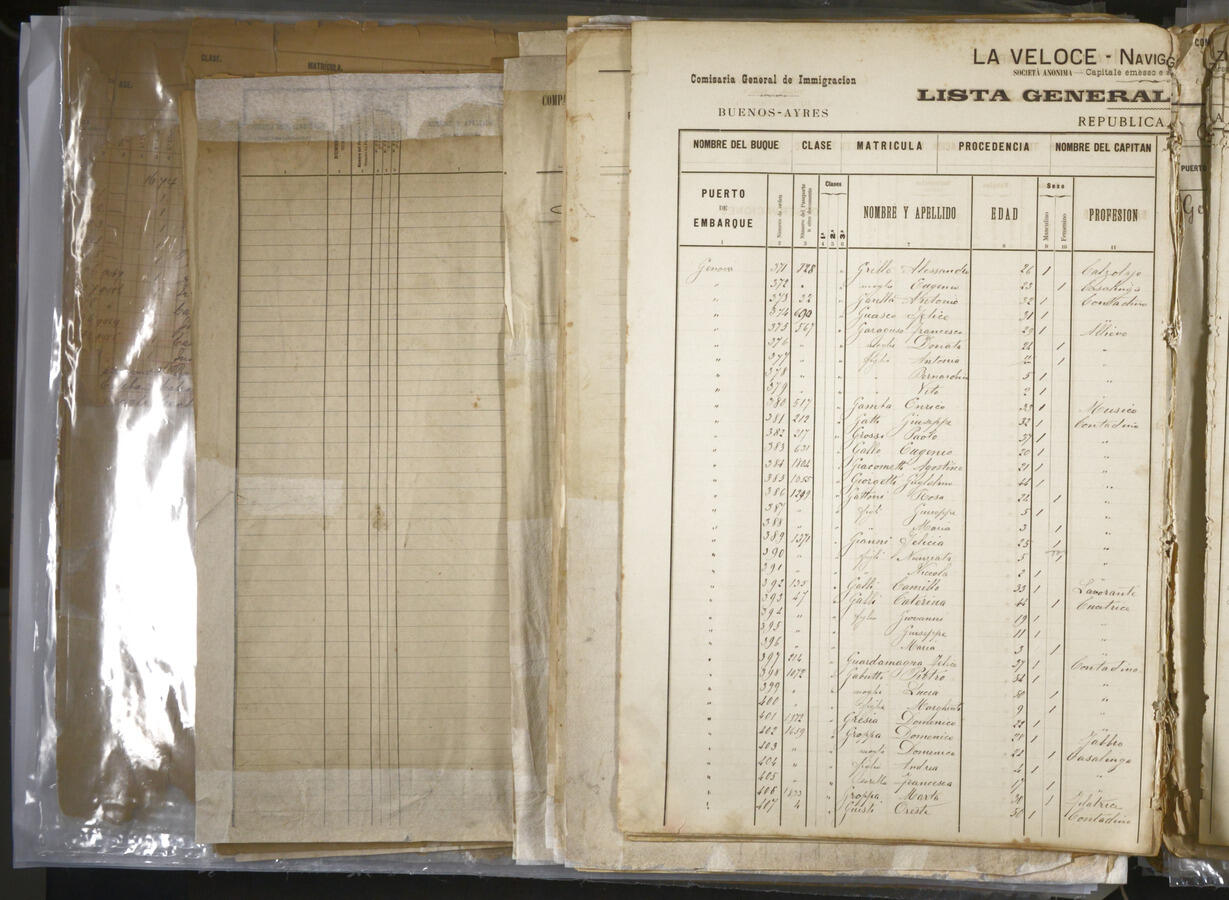 CLASE.
MATRICULA.
ASE.
1674
COMP
LA VELOCE - NAVIGG
SOCIETÀ ANONIMA — Capitale emesso e
Comisaria General de Immigracion
BUENOS-AYRES
LISTA GENERAL
REPUBLICA
NOMBRE DEL BUQUE CLASE MATRICULA PROCEDENCIA NOMBRE DEL CAPITAN
PUERTO DE EMBARQUE Número de orden Número del Pasaporte u otro documento Clases 1ª 2ª 3ª NOMBRE Y APELLIDO EDAD Sexo Masculino Femenino PROFESION
1 2 3 4 5 6 7 8 9 10 11
Genova 371 128 " Grillo Alessandro 26 1
" 372 " " moglie Eugenia 23 1 Casalinga
" 373 32 " Antonio 32 1 Contadino
" 374 690 " Guasco Felice 31 1 "
" 375 567 " Francesco 29 1
" 376 " " moglie Donata 1 "
" 377 " " figli Antonia 1 "
" 378 " " " Bernardino 5 1 "
" 379 " " " Vito 2 1 "
" 380 517 " Gamba Enrico 33 1 Musico
" 381 212 " Gatti Giuseppe 32 1 Contadino
" 382 217 " Grossi Paolo 37 1 "
" 383 631 " Gallo Eugenio 20 1 "
" 384 1804 " Giacometti Agostino 21 1 "
" 385 1055 " Giorgetti Guglielmo 44 1 "
" 386 1249 " Gattoni Rosa 1 "
" 387 " " figli Giuseppe 5 1 "
" 388 " " " Maria 3 1 "
" 389 1371 " Gianni Felicia 25 1 "
" 390 " " figli Nunziata 5 1 "
" 391 " " " Niccola 2 1 "
" 392 135 " Galli Camillo 33 1 Lavorante
" 393 47 " Galli Caterina 44 1 Cucitrice
" 394 " " figlio Giovanni 19 1
" 395 " " Giuseppe 11 1 "
" 396 " " Maria 3 1 "
" 397 214 " Guardamagna Felice 37 1 Contadino
" 398 1072 " Gabutti Pietro 54 1 "
" 399 " " moglie Lucia 50 1 "
" 400 " " figlia Margherita 9 1 "
" 401 1372 " Gresia Domenico 22 1 "
" 402 1639 " Groppa Domenico 21 1 Fabbro
" 403 " " moglie Domenica 1 Casalinga
" 404 " " figlio Andrea 4 1 "
" 405 " " sorella Francesca 17 1 "
" 406 1833 " Groppa Marta 30 1 Filatrice
" 407 4 " Giusti Oreste 30 1 Contadino
PUERTO